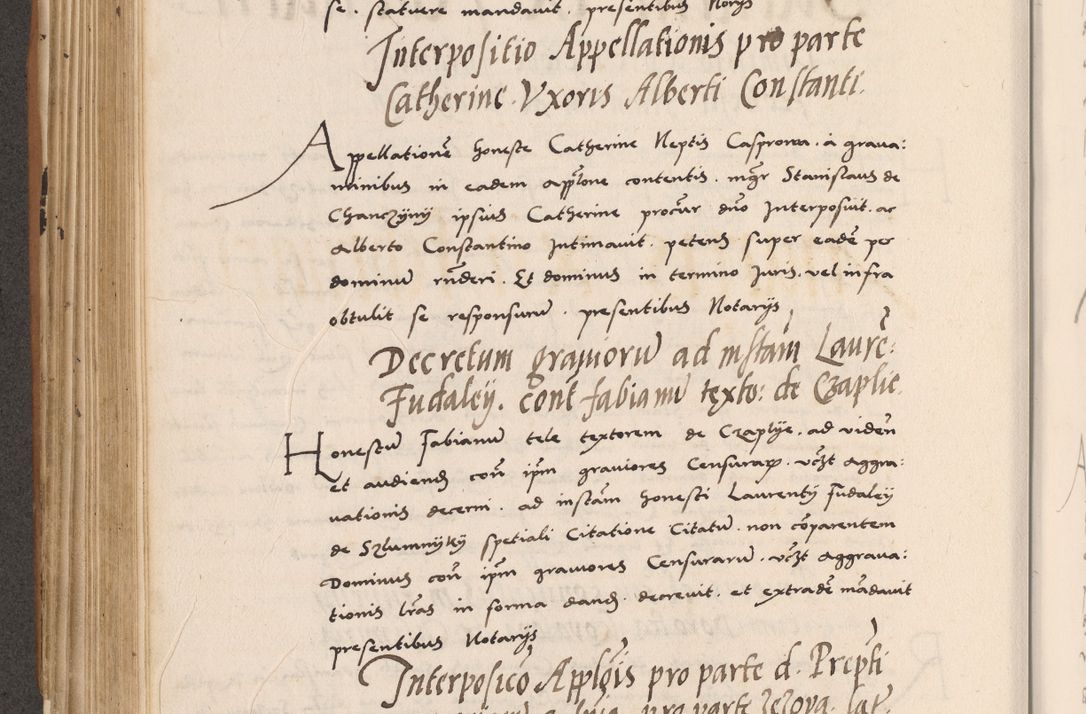 se. statuere mandavit. presentibus Norijs
Interpositio Appellationis pro parte
Catherine. Vxoris Alberti Constanti.
Appellationē honeste Catherine Neptis Casprowa. a grava:
minibus in eadem applōne contentis. mḡr Stanislaus de
Chanczyny ipsius Catherine procūr duō Interposuit. ac
Alberto Constantino Intimavit. petens super eadē per
dominū rn̄deri. Et dominus in termino Juris. vel infra
obtulit se responsurū. presentibus Notarijs
Decretum graviorū ad instān Laurē:
Fudaley. cont̄ fabianū texto: de Czaplic.
Honestū Fabianū tele textorem de Czaplye. ad viden̄
et audiend con̄ ipm̄ graviores Censurarp. vc̄zt Aggra:
vationis decerni. ad instām honesti Laurentij Fudaley
de Szlumnyky spetiali Citatione Citatū. non cōparentem
Dominus con̄ ipm̄ graviores Censurarū. vc̄zt Aggrava:
tionis lr̄as in forma dand. decrevit. et extradē mādavit
presentibus Notarijs
Interposicō Applōis pro parte d. Prep̄ti
pro parte